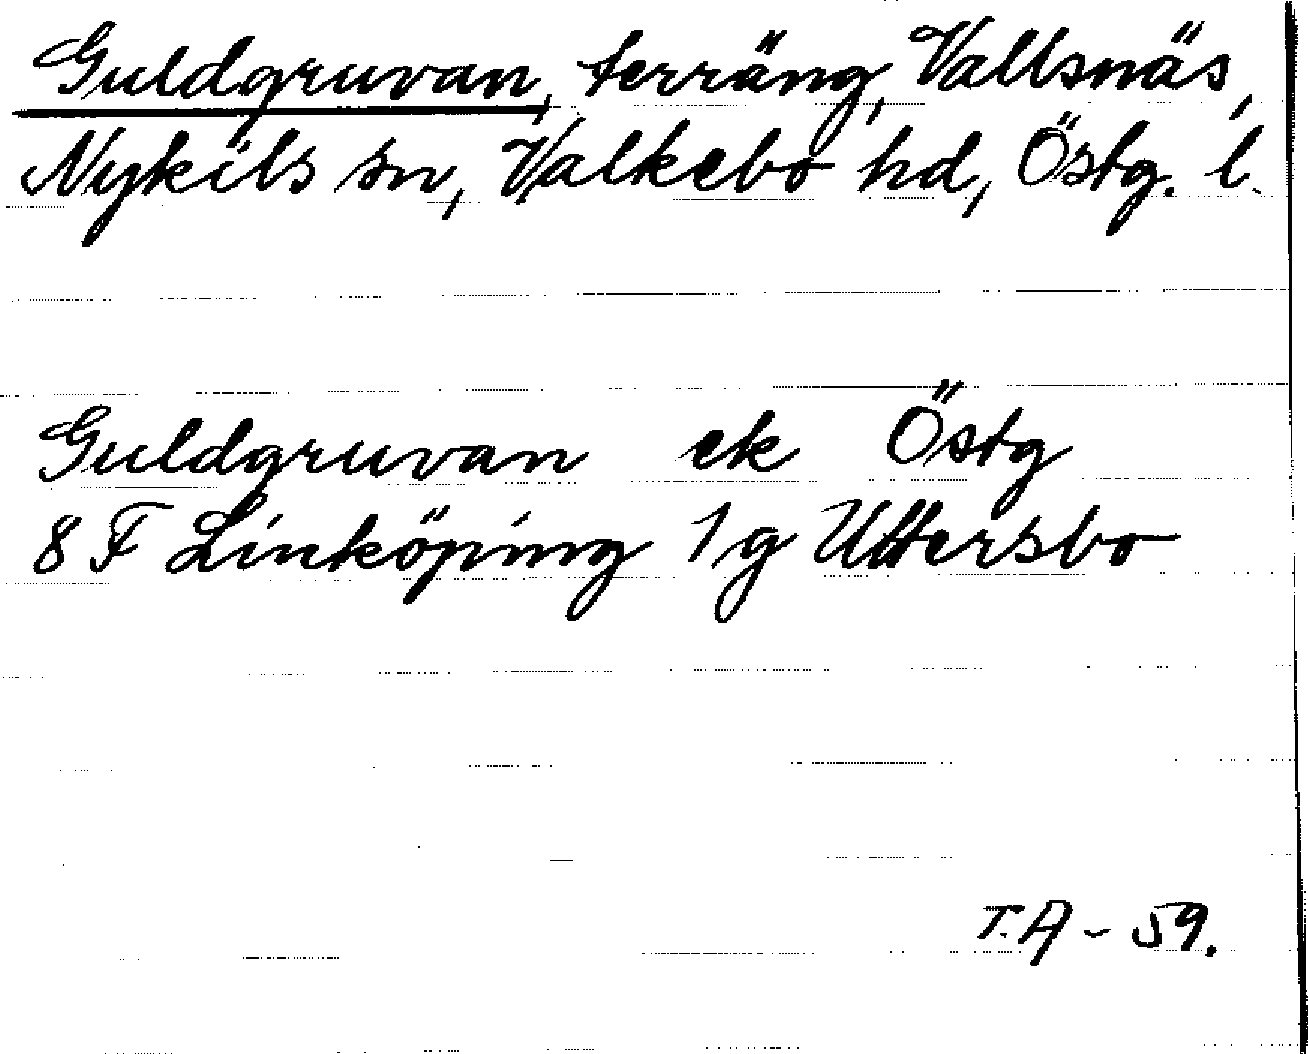 Guldgruvan, terräng, Vallsnäs,
Nykils sn, Valkebo hd, Östg. l.
Guldgruvan ek Östg
8 F Linköping 1 g Uttersbo
T.A - 59.